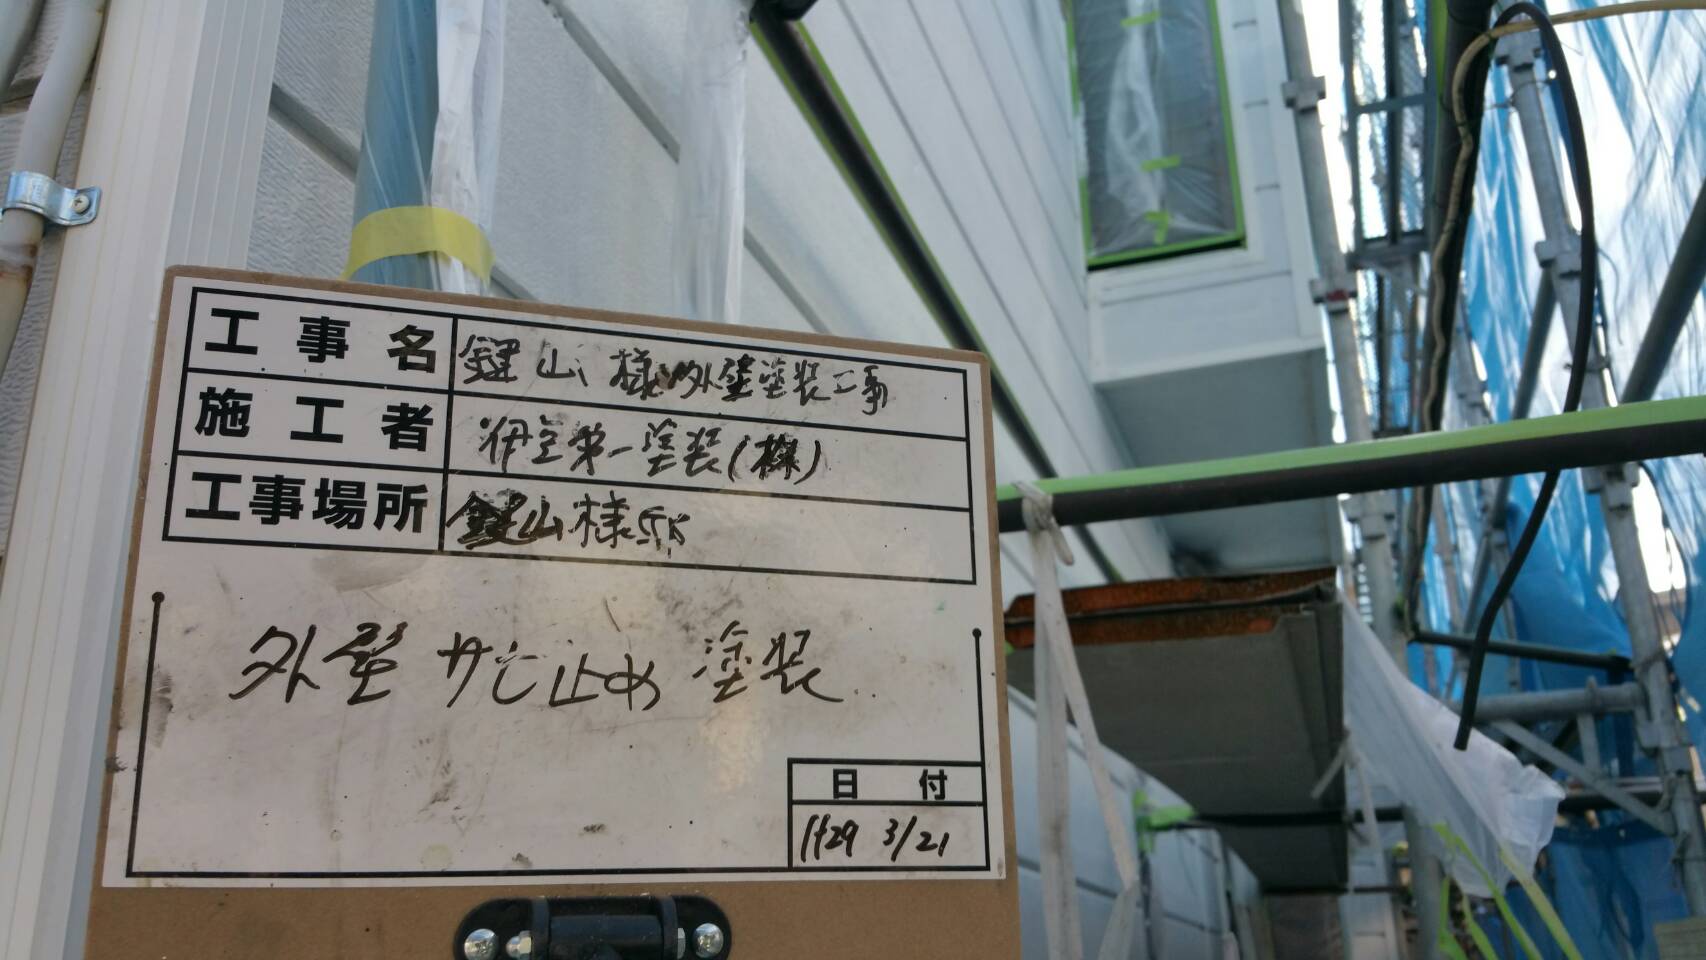 工事名 鍵山様外壁塗装工事
施工者 伊豆第一塗装(株)
工事場所 鍵山様邸
外壁 サビ止め 塗装
日付
H29 3/21